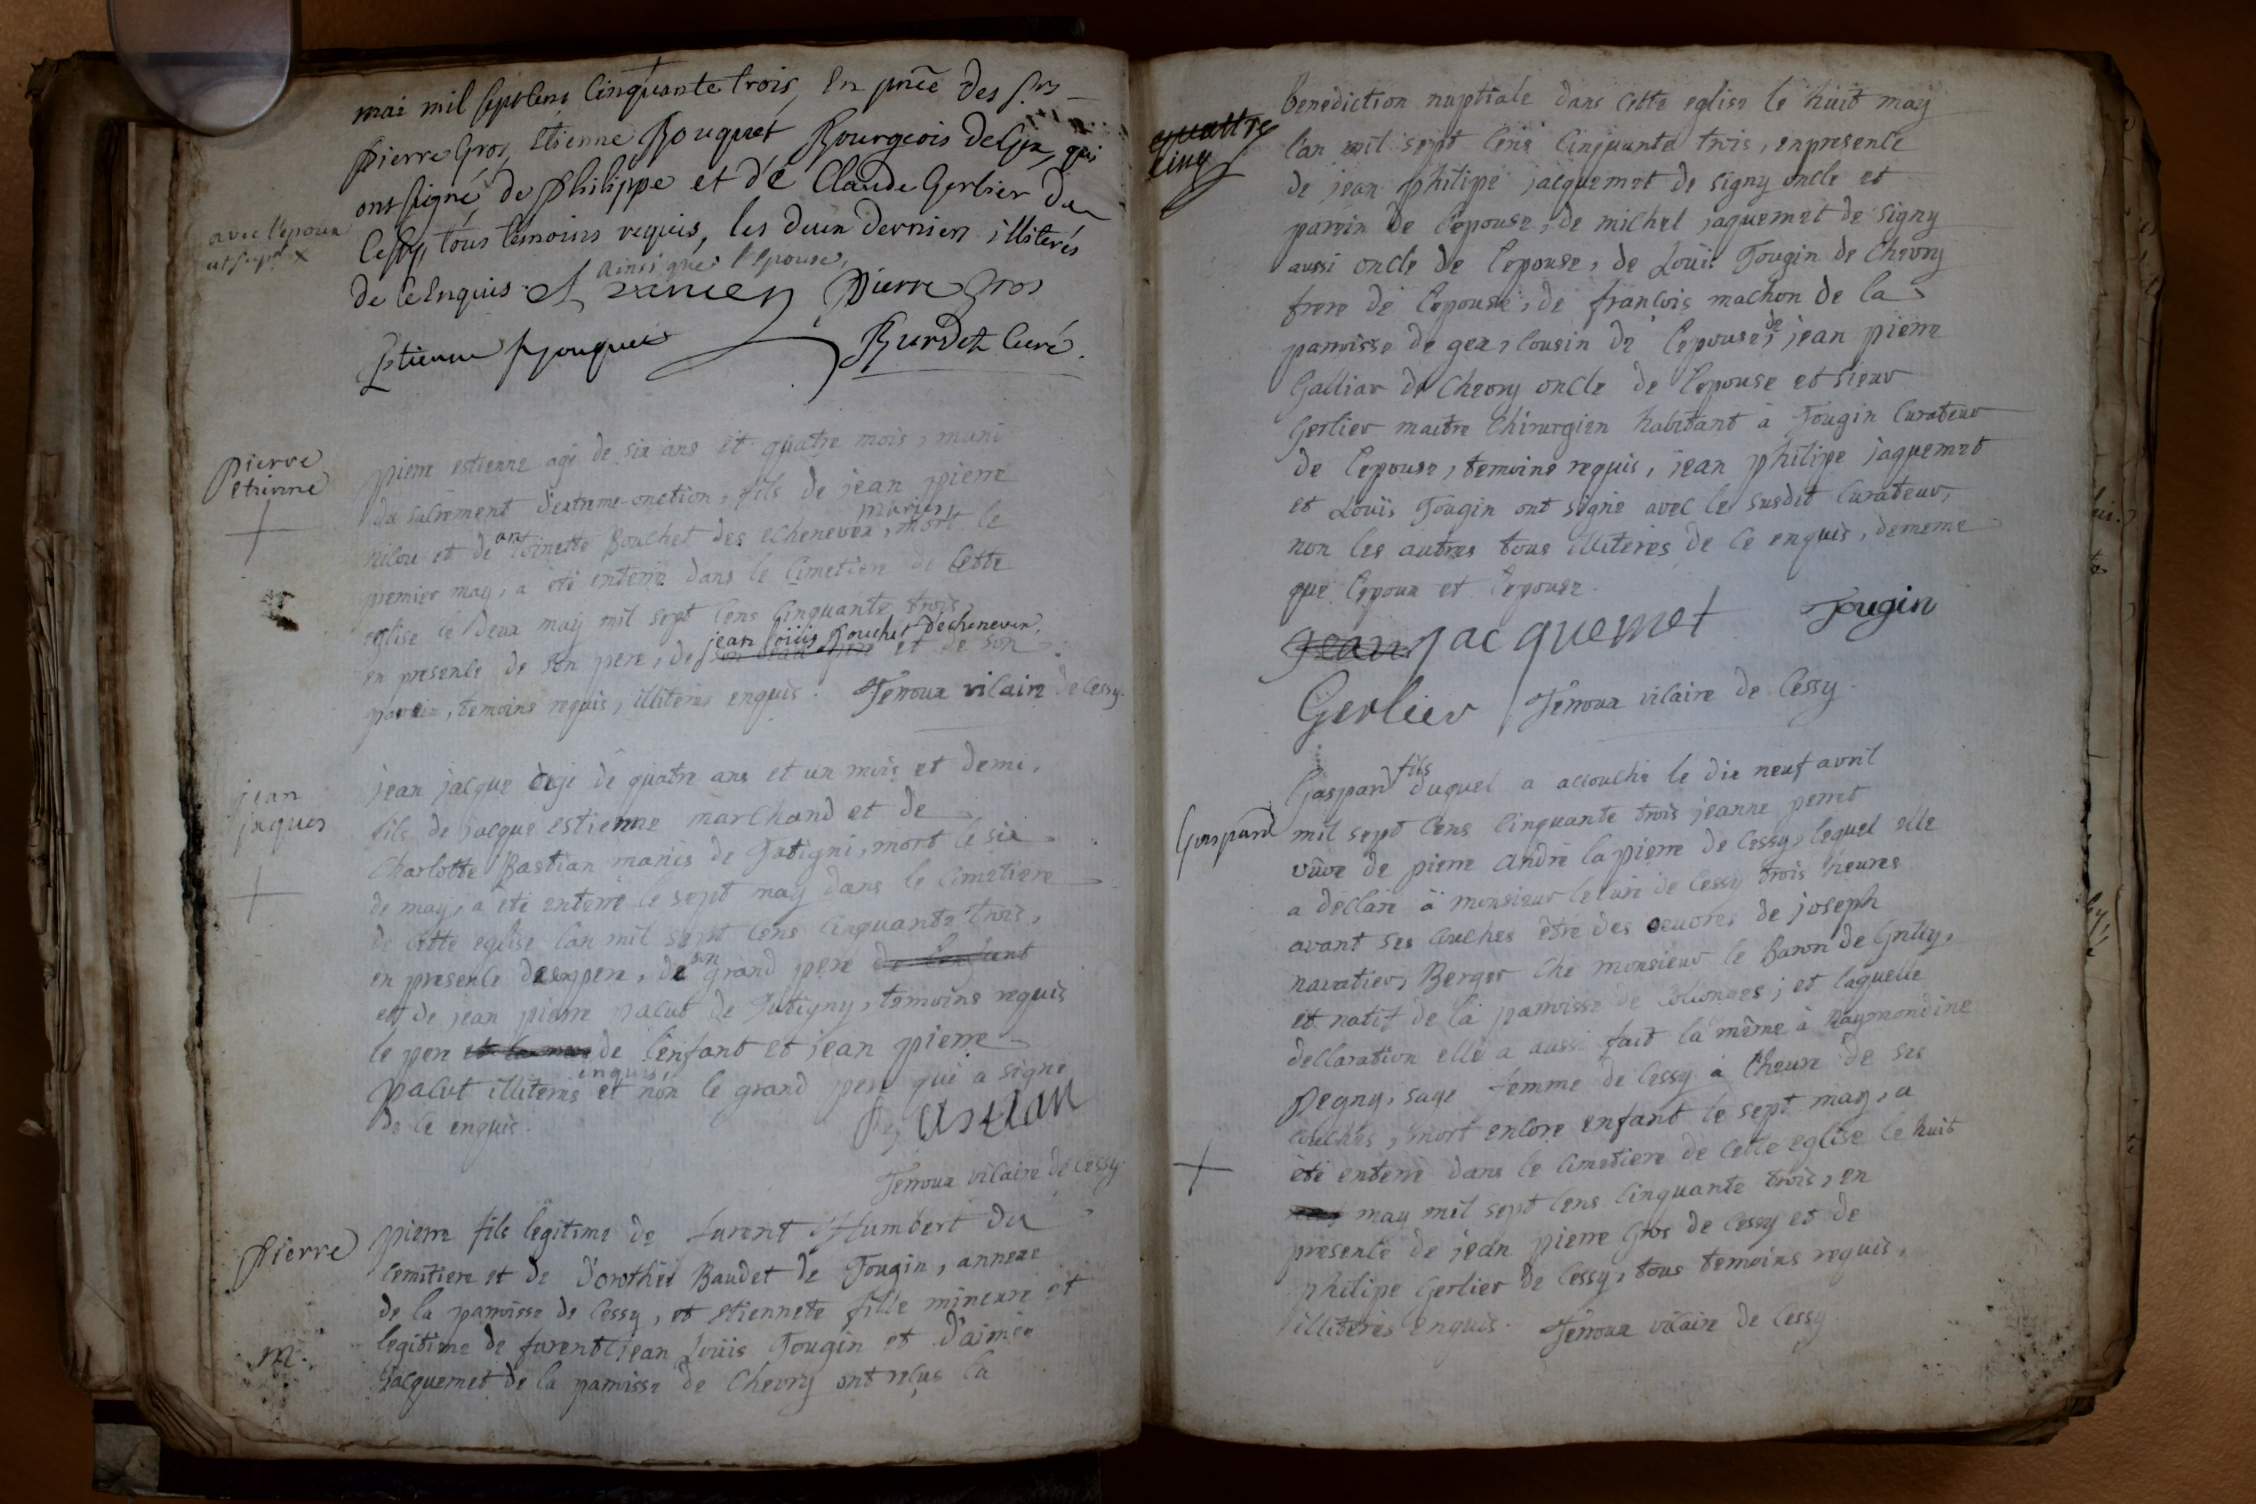 mai mil sept cens cinquante trois, en pñce des srs
Pierre Gros, Etienne Bouquet Bourgeois de Gex, qui
ont signé, de Philippe et de Claude Gerlier de
avec l'epoux
ut supra x
Cessy, tous témoins requis, les deux derniers illiterés
ainsi que l'Epouse,
de ce Enquis. Pierre Gros
Etienne Bouquet Burdet Curé.
Pierre
etienne
pierre estienne agé de six ans et quatre mois, muni
du sacrement d'extreme-onction, fils de jean pierre
nilou et de antoinette Bouchet des echenevex, mariés, mort le
premier may, a été enterré dans le cimetiere de cette
eglise le deux may mil sept cens cinquante trois,
en presence de son pere, de jean louis Bouchet d'echenevex, et de son
parrin, temoins requis, illiterés enquis. Ferroux vicaire de Cessy.
jean
jaques
jean jacque agé de quatre ans et un mois et demi,
fils de jacque estienne marchand et de
Charlotte Bastian mariés de Tutigni, mort le six
de may, a été enterré le sept may dans le cimetiere
de cette eglise l'an mil sept cens cinquante trois,
en presence de son pere, de son grand pere de l'enfant
et de jean pierre palut de Tutigny, temoins requis
le pere et la mere de l'enfant et jean pierre
palut illiterés enquis, et non le grand pere qui a signé
de ce enquis.
Bastian
Ferroux vicaire de Cessy
Pierre
pierre fils legitime de furent Humbert du
cemitiere et de Dorothée Baudet de Tougin, annexe
de la parroisse de Cessy, et etiennete fille mineure et
m.
legitime de furent jean Louis Tougin et d'aimée
Jacquemet de la parroisse de Chevry ont reçus la
quattre
cinq
benediction nuptiale dans cette eglise le huit may
l'an mil sept cens cinquante trois, en presence
de jean philipe jacquemet de signy oncle et
parrin de l'epouse, de michel jaquemet de signy
aussi oncle de l'epouse, de Louis Tougin de Chevry
frere de l'epouse, de francois machon de la
parroisse de gex, cousin de l'epouse, de jean pierre
Galliar de Chevry oncle de l'epouse et sieur
Gerlier maitre chirurgien habitant à Tougin curateur
de l'epouse, temoins requis, jean philipe jaquemet
et Louis Tougin ont signé avec le susdit curateur,
non les autres tous illiterés de ce enquis, de meme
que l'epoux et l'epouse.
jean jacquemet Tougin
Gerlier Ferroux vicaire de Cessy.
Gaspard
Gaspard fils duquel a accouché le dix neuf avril
mil sept cens cinquante trois jeanne perret
veuve de pierre andré lapierre de Cessy, lequel elle
a déclaré à monsieur le curé de Cessy trois heures
avant ses couches être des oeuvres de joseph
navatier, Berger ché monsieur le Baron de Grilly,
et natif de la parroisse de Colonges; et laquelle
declaration elle a aussi fait la même à Raymondine
Pegny, sage femme de Cessy à l'heure de ses
couches, mort encore enfant le sept may, a
été enterré dans le cimetiere de cette eglise le huit
may mil sept cens cinquante trois, en
presence de jean pierre Gros de Cessy et de
philipe Gerlier de Cessy, tous temoins requis,
illiterés enquis. Ferroux vicaire de Cessy